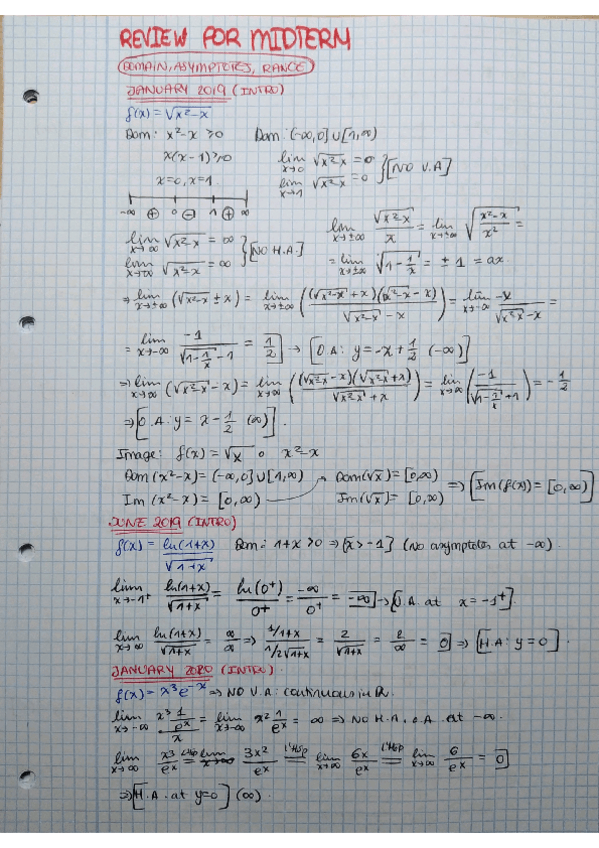 REVIEW FOR MIDTERM
DOMAIN, ASYMPTOTES, RANGE
JANUARY 2019 (INTRO)
f(x) = √(x²-x)
Dom: x²-x ≥0 Dom: (-∞,0] ∪ [1,∞)
x(x-1)≥0 lim x→0 √(x²-x) = 0
x=0, x=1 lim x→1 √(x²-x) = 0 } [NO V.A]
-∞ ⊕ 0 ⊖ 1 ⊕ ∞
lim x→-∞ √(x²-x) = ∞
lim x→∞ √(x²-x) = ∞ } [NO H.A]
lim x→±∞ √(x²-x)/x = lim x→±∞ √((x²-x)/x²) =
= lim x→±∞ √(1-1/x) = ± 1 = ax.
⇒ lim x→±∞ (√(x²-x) ± x) = lim x→±∞ ((√(x²-x) + x)(√(x²-x) - x))/(√(x²-x) - x) = lim x→-∞ -x/(√(x²-x) - x) =
= lim x→-∞ -1/(√(1-1/x) -1) = 1/2 → [O.A: y=-x+1/2 (-∞)]
⇒ lim x→∞ (√(x²-x) - x) = lim x→∞ ((√(x²-x) - x)(√(x²-x) + x))/(√(x²-x) + x) = lim x→∞ (-1/(√(1-1/x) +1)) = -1/2
⇒ [O.A: y= x-1/2 (∞)].
Image: f(x) = √x o x²-x
Dom (x²-x) = (-∞,0] ∪ [1,∞) Dom(√x) = [0,∞)
Im (x²-x) = [0,∞) Im(√x) = [0,∞) ⇒ [Im (f(x)) = [0,∞)]
JUNE 2019 (INTRO)
f(x) = ln(1+x)/√(1+x) Dom: 1+x >0 ⇒ [x>-1] (No asymptotes at -∞).
lim x→-1⁺ ln(1+x)/√(1+x) = ln(0⁺)/0⁺ = -∞/0⁺ = -∞] → [V.A. at x=-1⁺].
lim x→∞ ln(1+x)/√(1+x) = ∞/∞ ⇒ (1/1+x)/(1/2√(1+x)) = 2/√(1+x) = 2/∞ = 0] ⇒ [H.A: y=0].
JANUARY 2020 (INTRO).
f(x) = x³e^-x ⇒ NO V.A: continuous in R.
lim x→-∞ (x³ 1/e^x)/x = lim x→-∞ x² 1/e^x = ∞ ⇒ NO H.A, O.A. at -∞.
lim x→∞ x³/e^x = 3x²/e^x L'Hôp = lim x→∞ 6x/e^x L'Hôp = lim x→∞ 6/e^x = 0]
⇒ [H.A. at y=0] (∞).